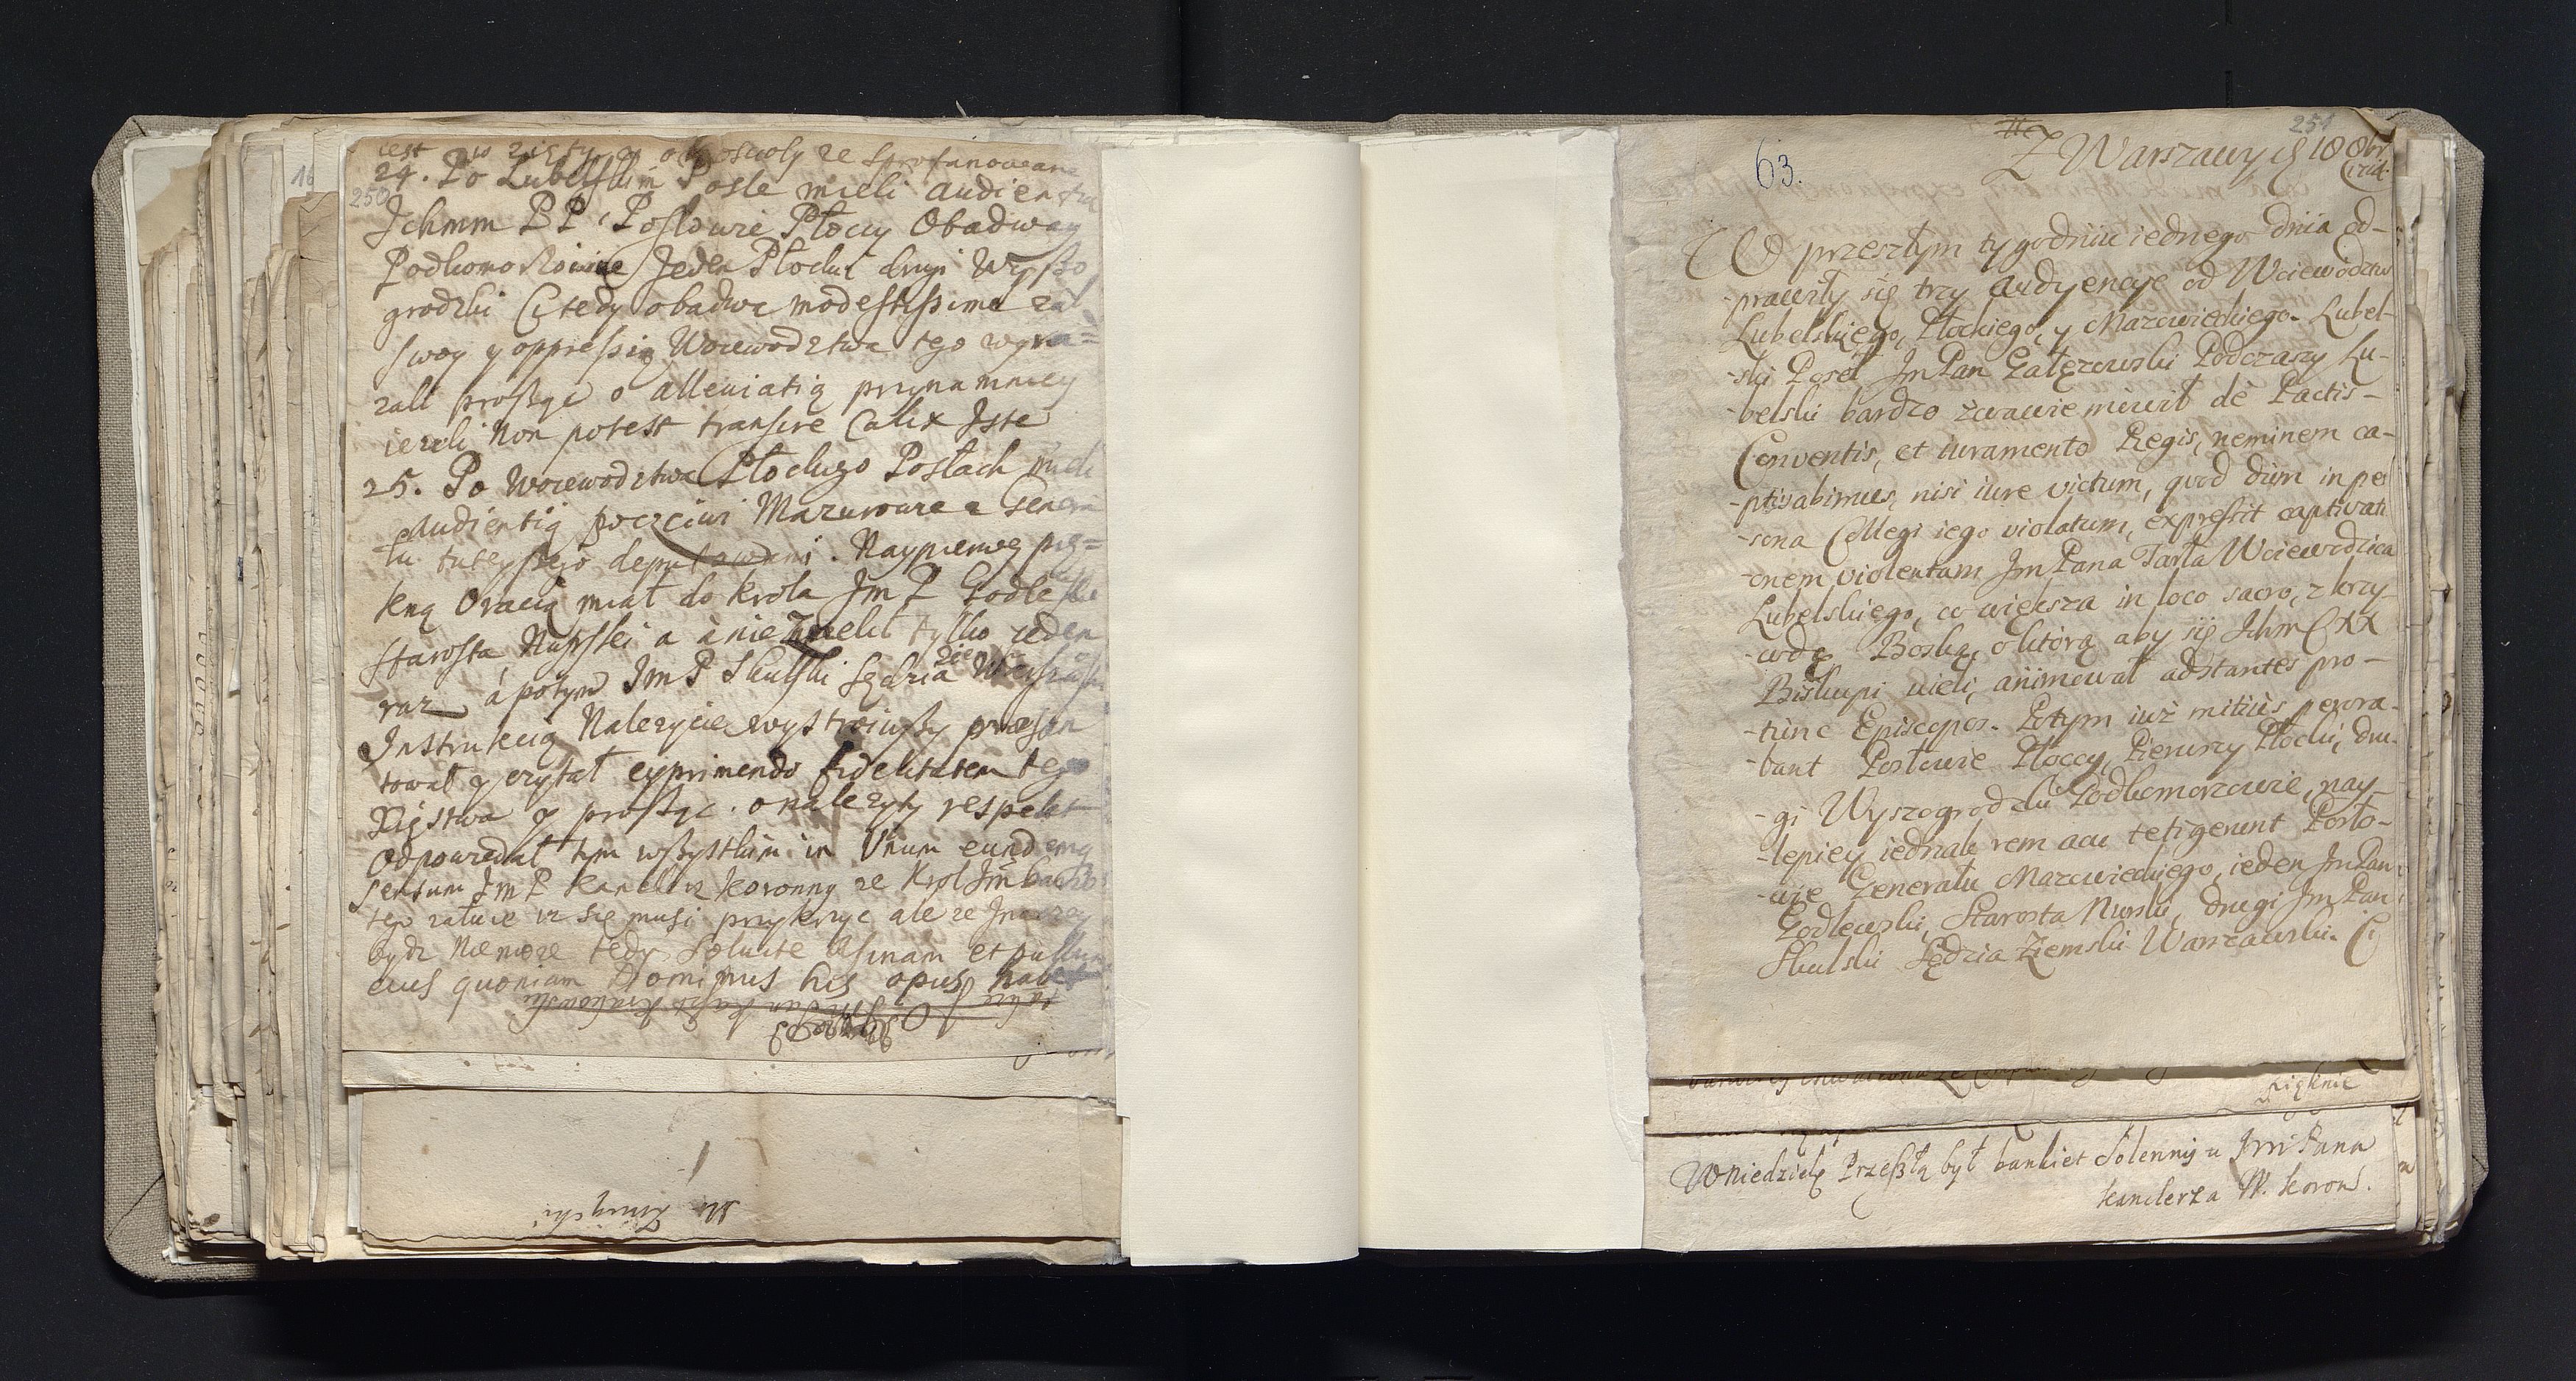 iest wzięty a o Koscioly ze sprofanowane
250
24. Po Lubelskim Posle mieli audientią
Jchmm PP. Posłowie Płoccy Obadway
Podkomorowie Jeden Płocki drugi Wyszo
grodzki Ci tedy obadwa modestissime zal
swoy y oppressią Woiewodztwa tego wyra=
zali prosząc o alleviatią przynamniey
iezeli non potest transire Calix Iste
25. Po Woiewodztwa Płockiego Posłach mieli
Audientią poczciwi Mazurowie a Genera
łu tuteyszego deputowani. Naypierwey pię=
kną Oracią miał do krola Jm P Godlewski
Starosta Nurski a nie tylko ieden
raz a potym Jm P Skulski Sędzia
Instrukcią Nalezycie wystroiwszy prezen
tował y czytał exprimendo fidelitatem tego
Xięstwa y prosząc o nalezyty respekt
Odpowiedał tym wszystkim in Unum eundemq
sensum Jm P Kanclerz Koronny ze Krol Jm bardzo
tego załuie iz się musi przykrzyc ale ze Jnaczey
bydz Niemoze tedy Soluite Asinam et pullum
eius quoniam Dominus his opus habet
63.
251
Z Warszawy d 18 8br
1714.
W przeszłym tygodniu iednego dnia od-
-prawiły się trzy Audyencye od Woiewodztw
Lubelskiego, Płockiego, y Mazowieckiego. Lubel-
-ski Poseł Jm Pan Gałęzowski Podczaszy Lu-
-belski bardzo zwawie mowił de Pactis-
Conventis, et iuramento Regis, neminem ca-
-ptivabimus, nisi iure victum, quod dum in per
-sona Collegi iego violatum, expressit captivati
-onem violentam Jm Pana Tarła Woiewodzica
Lubelskiego, co większa in loco sacro, z krzy-
-wdą Boską, o ktorą aby się Jchm CXX
Biskupi uieli, animował adstantes pro-
-tunc Episcopos. Potym iuż mitius perora-
-bant Posłowie Płoccy, Pierwszy Płocki, dru-
-gi Wyszogrodzki Podkomorzowie, nay-
-lepiey iednak rem acu tetigerunt Posło-
-wie Generału Mazowieckiego, ieden Jm Pan
Godlewski, Starosta Nurski, drugi Jm Pan
Skulski Sędzia Ziemski Warszawski. Ci
pięknie
W Niedzielę Przeszłą był bankiet Solenny u Jm Pana
Kanclerza W. Koron.